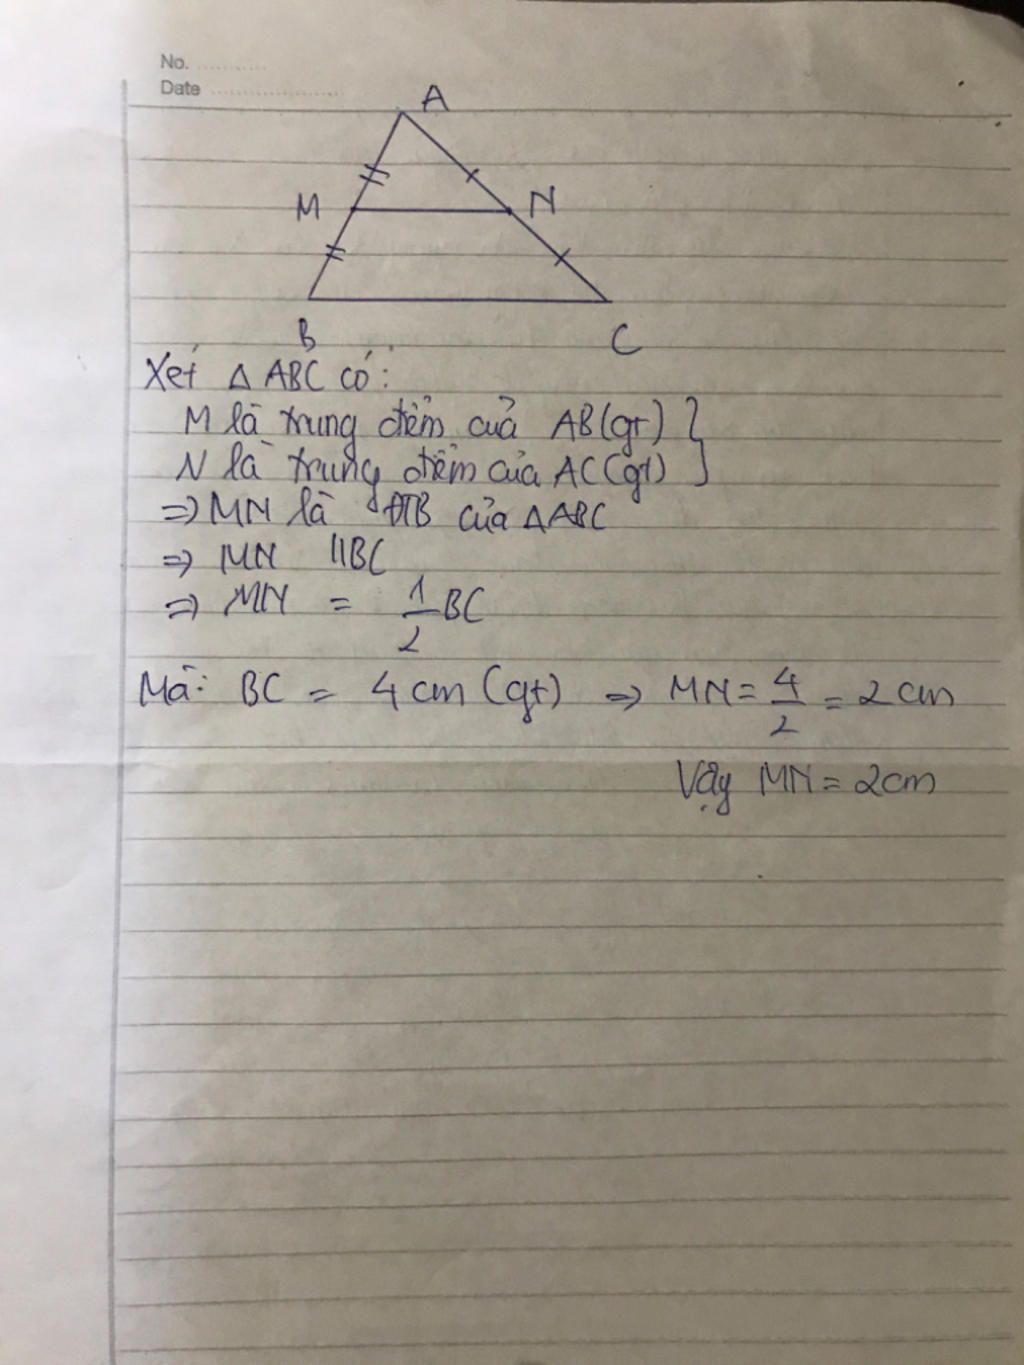 No. ............
Date ......................
A
M
N
B
C
Xét Δ ABC có:
M là trung điểm của AB(gt) }
N là trung điểm của AC(gt)
=> MN là ĐTB của ΔABC
=> MN //BC
=> MN = 1/2 BC
Mà: BC = 4cm (gt) => MN = 4/2 = 2cm
Vậy MN = 2cm